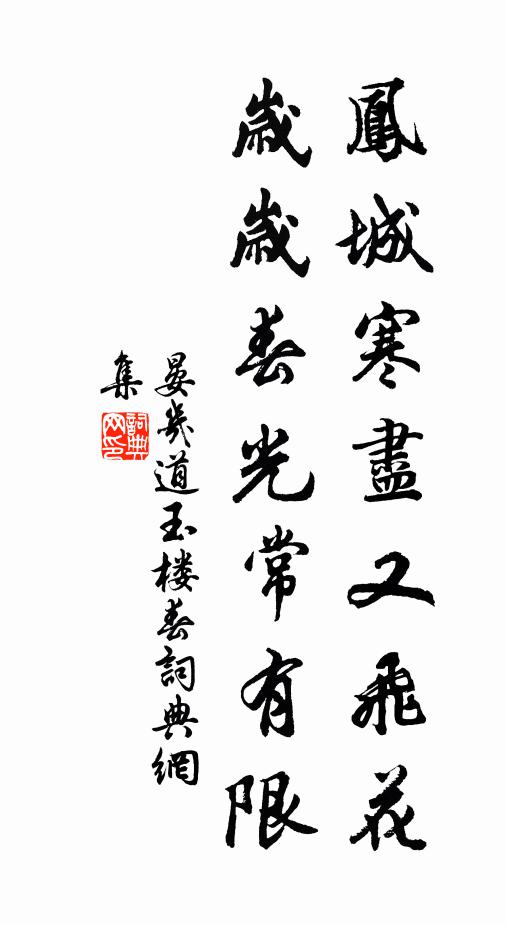 鳳城寒盡又飛花
歲歲春光常有限
晏幾道玉楼春詞典網
集
詞典
网印